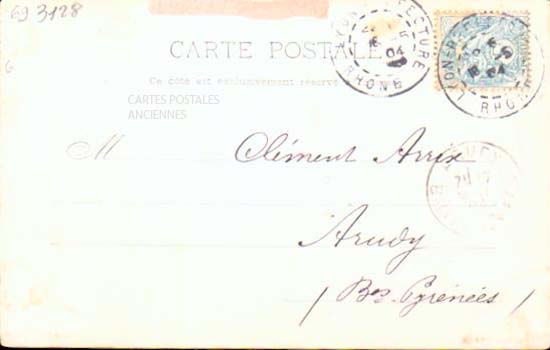 69 3128
CARTE POSTALE
Ce côté est exclusivement réservé
CARTES POSTALES
ANCIENNES
M
Clément Arrix
Arudy
(Bses Pyrénées)
LYON PREFECTURE
04
RHONE
LYON PREFECTURE
04
RHONE
6